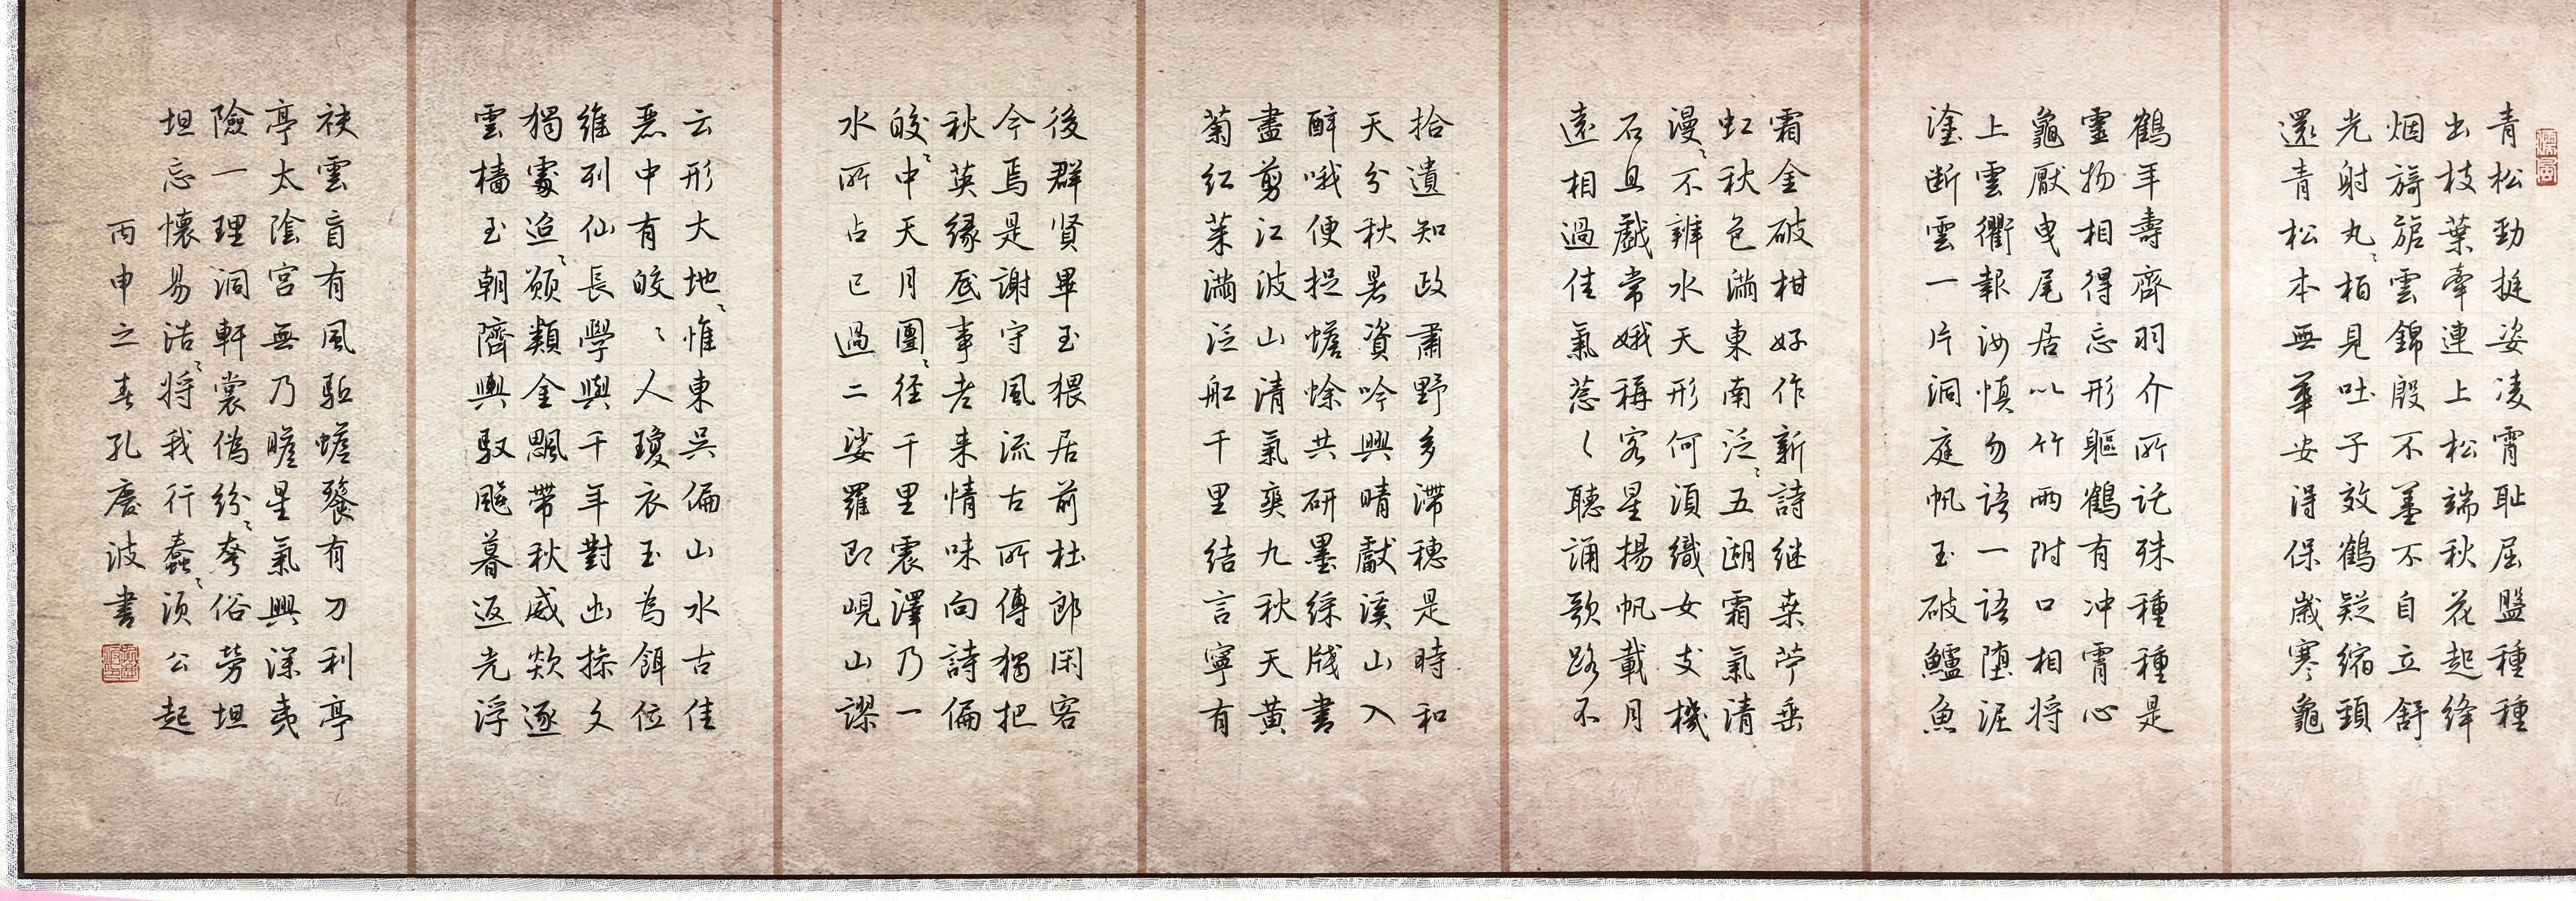 青松勁挺姿凌霄耻屈盤種種
出枝葉牽連上松端秋花起絳
烟旖旎雲錦殷不羞不自立舒
光射丸〻栢見吐子效鶴疑縮頸
還青松本無華安得保歲寒龜
鶴年壽齊羽介所託殊種種是
靈物相得忘形軀鶴有冲霄心
龜厭曳尾居以竹兩附口相將
上雲衢報汝慎勿語一語墮泥
塗断雲一片洞庭帆玉破鱸魚
霜金破柑好作新詩继桒苧垂
虹秋色滿東南泛〻五湖霜氣清
漫〻不辨水天形何湏織女支機
石且戲常娥稱客星揚帆載月
遠相過佳氣葱〻聽誦歌路不
拾遺知政肅野多滞穗是時和
天分秋暑資吟興晴獻溪山入
醉哦便捉蟾蜍共研墨綵牋書
盡剪江波山清氣爽九秋天黄
菊红茱滿泛舡千里結言寧有
後群賢畢至猥居前杜郎閑客
今焉是謝守風流古所傳獨把
秋英緣底事老来情味向詩偏
皎〻中天月團〻径千里震澤乃一
水所占已過二娑羅即峴山謬
云形大地〻惟東吳偏山水古佳
麗中有皎〻人瓊衣玉為餌位
維列仙長學與千年對幽操久
獨處迢〻願類金飄帶秋威欻逐
雲檣至朝隮輿馭飈暮返光浮
袂雲盲有風駈蟾餮有刀利亭
亭太陰宮無乃瞻星氣興深夷
險一理洞軒裳偽紛〻夸俗勞坦
坦忘懷易浩〻將我行蠢〻湏公起
丙申之春孔慶波書